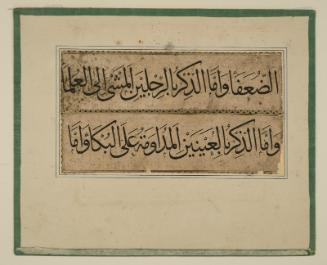 الضعفا واما الذكر بالرجلين المشى الى العلما
واما الذكر بالعينين المداومة على البكا واما